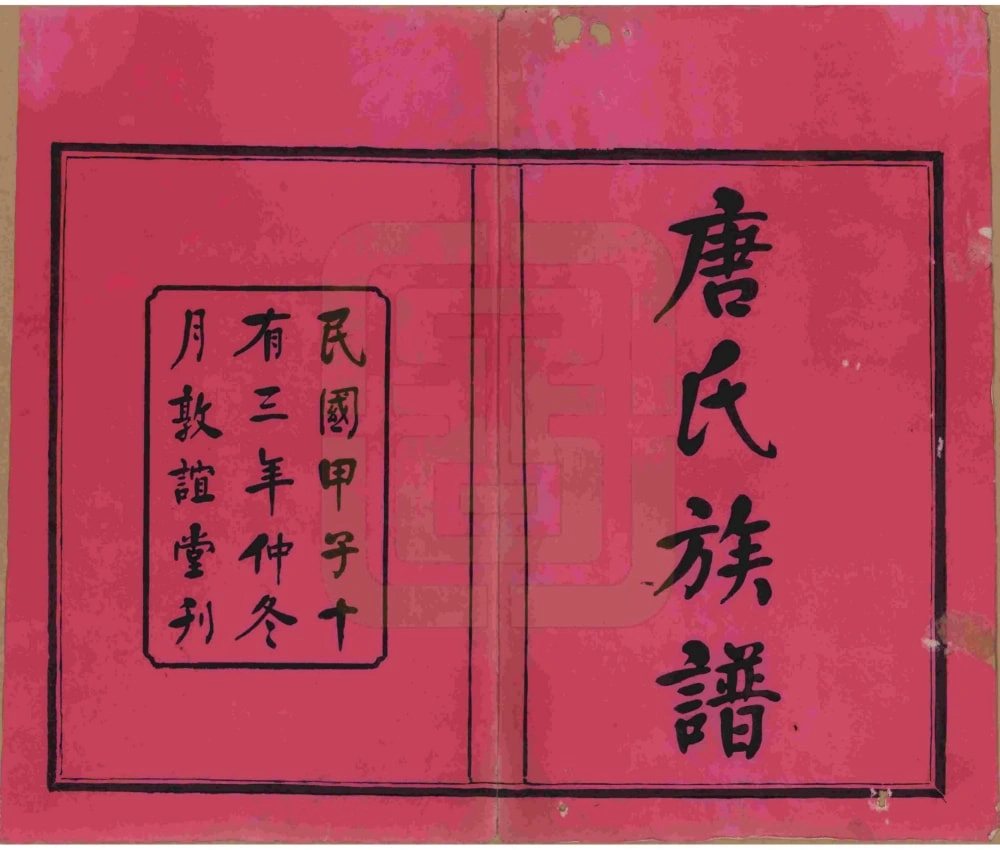 唐氏族譜
民國甲子十
有三年仲冬
月敦誼堂刋